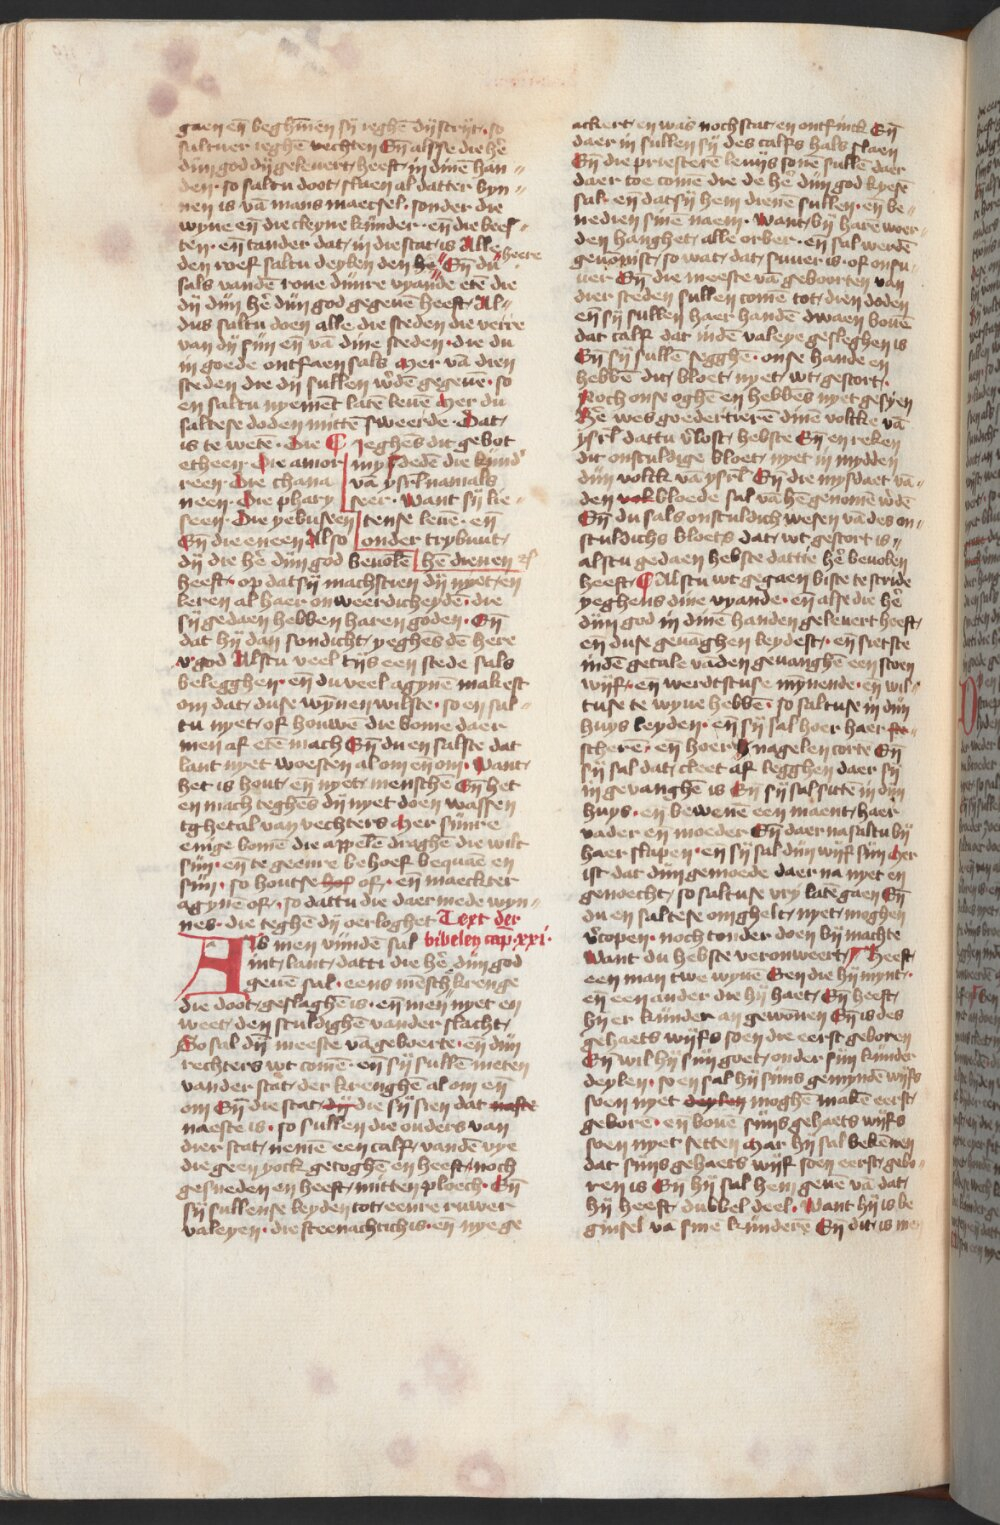 gaen en̄ beghīnen sij ieghē dij strijt· so
saltuer ieghē vechten En̄ alsse die hē
dijn god dij geleuert heeft in dinē han
den· so saltu doot slaen al datter byn
nen is vā mans maecsel· sonder die
wyue en̄ die cleyne kijnder· en̄ die bees
ten· en̄ tander dat in die stat is Alle
den roef saltu deylen den heere En̄ du
sals vandē roue dijnre vyande etē die
dij dijn hē dijn god gegeuē heeft Al
dus saltu doen alle die steden die verre
van dij sijn en̄ vā dine steden· die du
in goede ontfaen sals Mer vā dien
steden die dij sullen w̄dē gegeuē· so
en saltu nyemēt latē leuē Mer du
saltese doden mittē sweerde· Dat
is te wetē· Die
etheen· Die amor
reen· Die chana
neen· Die phary
seen· Die yebuseen
En̄ die eueen Also
dij die hē dijn god beuolē
ieghēs dit gebot
mysdedē die kijnd
vā ysrl namals
seer· Want sij lie
tense leuē· en̄
onder trybuut
hē dienen
heeft· op dat sij machscien dij nyet en
leren al haer onweerdicheydē· die
sij gedaen hebben haren goden· En̄
dat hij dan sondicht yeghēs dē here
v god Alstu veel tijs een stede sals
belegghen· en̄ du veel agynē makest
om dat duse wynnen wilste· so en sal
tu nyet of houwē die bome daer
men af etē mach En̄ du en salste dat
lant nyet woesten al om en̄ om· Want
het is hout· en̄ nyet menschē En̄ het
en mach teghēs dij nyet doen wassen
tghetal van vechters Mer sijnre
enige bomē die appelē draghē die wilt
sijn· en̄ te geenre behoef bequaē en
sijn· so houtse hof of· en̄ maeckter
agynē of· so dattu die daer mede wyn
nes· die teghē dij oerloghet Text der
bibelen cap· xxi·
Als men vijndē sal
int lant datti die hē dijn god
geuē sal· eens mēsch krenge
die doot geslaghē is· en̄ men nyet en
weet den sculdighē vander slacht
So sal dijn meeste vā geboerte· en̄ dijn
rechters wt comē· en̄ sij sullē meten
vander stat der krenghē al om en̄
om En̄ die stat dij die sij sien dat naste
naeste is· so sullen die ouders van
dier stat nemē een calf vandē vye
die geen yock getoghē en heeft noch
gesneden en heeft mitten ploech· En̄
sij sullense leyden tot eenre ruwer
valeyen· die steenachtich is· en̄ nye ge
ackert en was noch stat en ontfinck En̄
daer in sullen sij des calfs hals slaen
En̄ die priesterē leuijs sonē sullē daer
daer toe comē die de hē dijn god kyese
sal· en̄ dat sij hem dienē sullen· en̄ be
nedien sinē naem· Want bij harē woer
den hanghet alle orber· en̄ sal werdē
geuonist so wat dat suuer is· of onsu
uer En̄ die meeste vā geboorten van
dier steden sullen comē tot dien doden
en̄ sij sullen haer handē dwaen bouē
dat calf dat indē valeye gesleghen is
En̄ sij sullē segghē· onse hande en
hebbē dit bloet nyet wt gestort·
Noch onse oghē en hebbēs nyet gesyen
Hē wes goedertierē dinē volcke vā
ysrl dattu v̄lost hebste En̄ en reken
dit onsculdige bloet nyet in mydden
dijn volck vā ysrl En̄ die mysdaet vā
den vol bloede sal vā hē genomē w̄dē
En̄ du sals onsculdich wesen vā des on
sculdichs bloets dat wt gestort is
alstu gedaen hebste dattie hē beuolen
heeft Alstu wt gegaen biste te stride
yeghens dine vyande· en̄ alse die hē
dijn god in dinē handen geleuert heeft
en duse geuāghen leydest· en̄ sietste
indē getale vāden geuanghē een scoen
wijf· en werdtstuse mynnende· en̄ wil
tuse te wyue hebbē· so saltuse in dijn
huys leyden· en̄ sij sal hoer haer
scheren en̄ hoer nagelen corte En̄
sij sal dat cleet af legghen daer sij
in geuanghē is En̄ sij sal sitte in dijn
huys· en bewenē een maent haer
vader en moeder En̄ daer na saltu bij
haer slapen· en sij sal dijn wijf sijn Mer
ist dat dijn gemoede daer na nyet en
genoecht so saltuse vry latē gaen En̄
du en saltese om ghelt nyet moghen
v̄copen· noch tonder doen bij machte
Want du hebste veronweert Heeft
een man twe wyuē Een die hij mynt·
en een ander die hij haet En̄ heeft
hij er kijnder an gewonen En̄ is des
gehaets wijfs soen die eerst geboren
En̄ wil hij sijn goet onder sijn kijnder
deylen· so en sal hij sijns gemyndē wijfs
soen nyet deylen moghē makē eerst
gebore· en̄ bouē sijns gehaets wijfs
soen nyet setten Mar hij sal bekēnen
dat sijns gehaets wijf soen eerst gebo
ren is En̄ hij sal hem geuē vā dat
hij heeft dubbel deel· Want hij is be
ginsel vā sinē kijnderē En̄ dit is